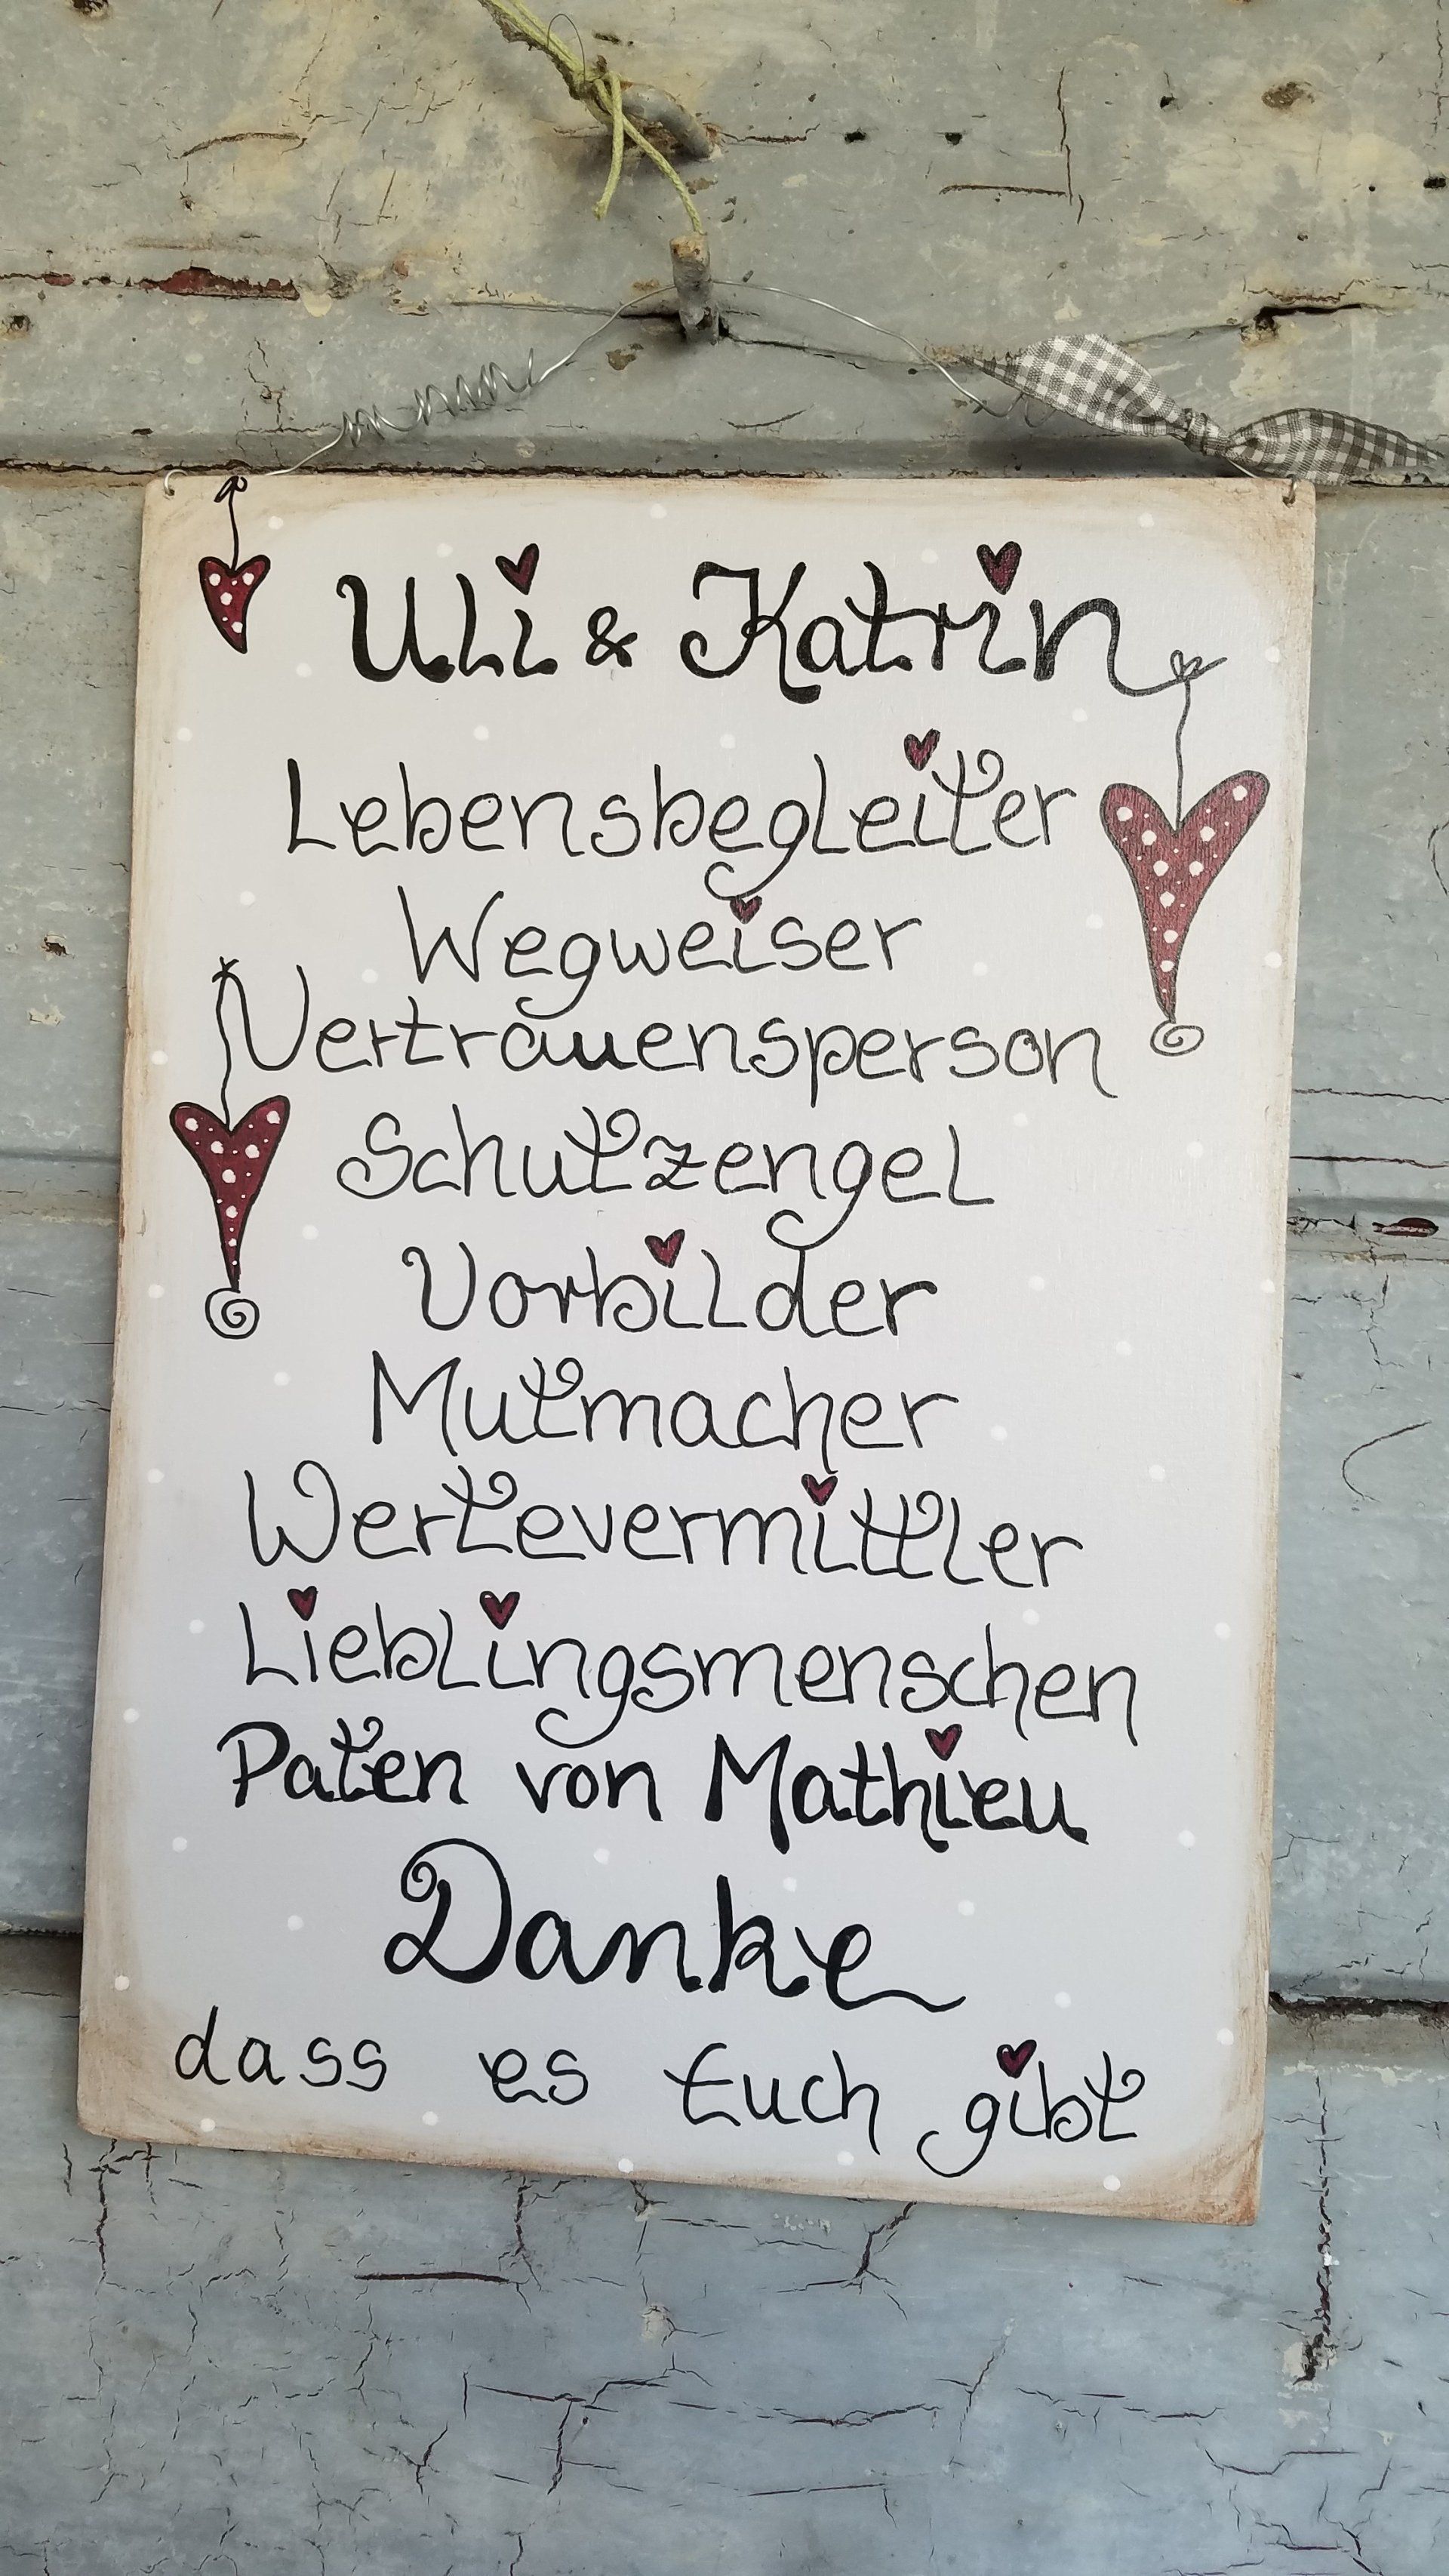 Uli & Katrin
Lebensbegleiter
Wegweiser
Vertrauensperson
Schutzengel
Vorbilder
Mutmacher
Wertevermittler
Lieblingsmenschen
Paten von Mathieu
Danke
dass es Euch gibt